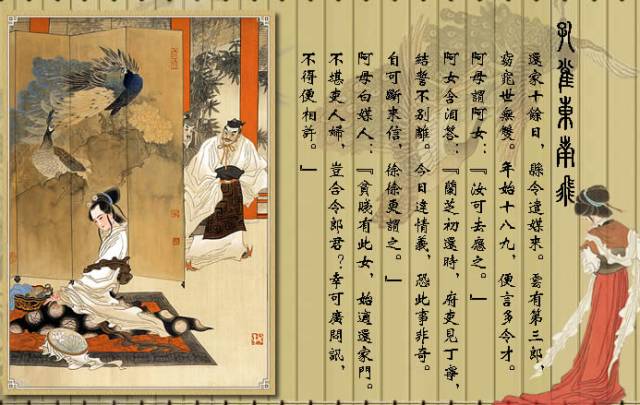 孔雀東南飛
還家十餘日,縣令遣媒來。雲有第三郎,
窈窕世無雙。年始十八九,便言多令才。
阿母謂阿女:『汝可去應之。』
阿女含泪答:『蘭芝初還時,府吏見丁寧,
結誓不別離。今日違情義,恐此事非奇。
自可斷來信,徐徐更謂之。』
阿母白媒人:『貧賤有此女,始適還家門。
不堪吏人婦,豈合令郎君?幸可廣問訊,
不得便相許。』